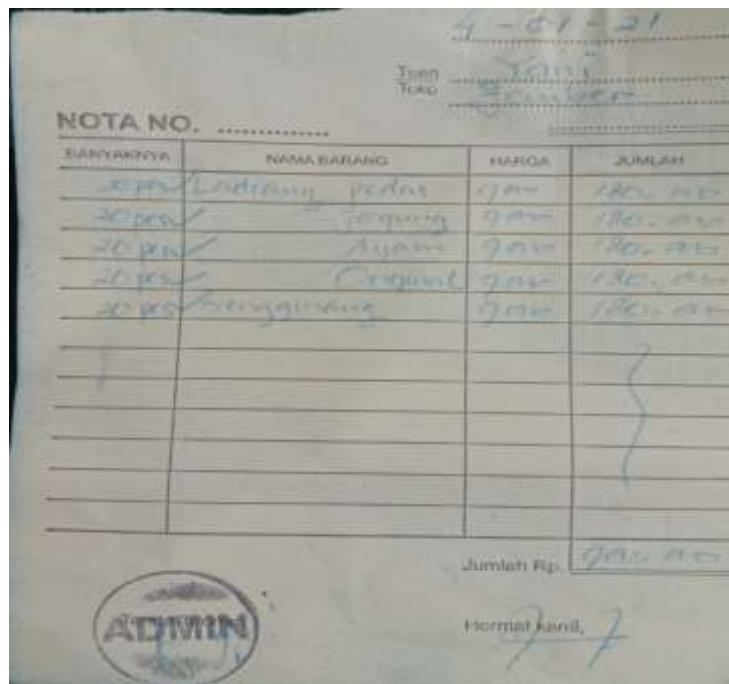 4 - 01 - 21
Tuan Yani
Toko Jember
NOTA NO. ..............
BANYAKNYA NAMA BARANG HARGA JUMLAH
20 pcs pedas 9000 180.000
20 pcs Jagung 9000 180.000
20 pcs Ayam 9000 180.000
20 pcs Original 9000 180.000
20 pcs 9000 180.000
Jumlah Rp. 900.000
ADMIN
Hormat kami,